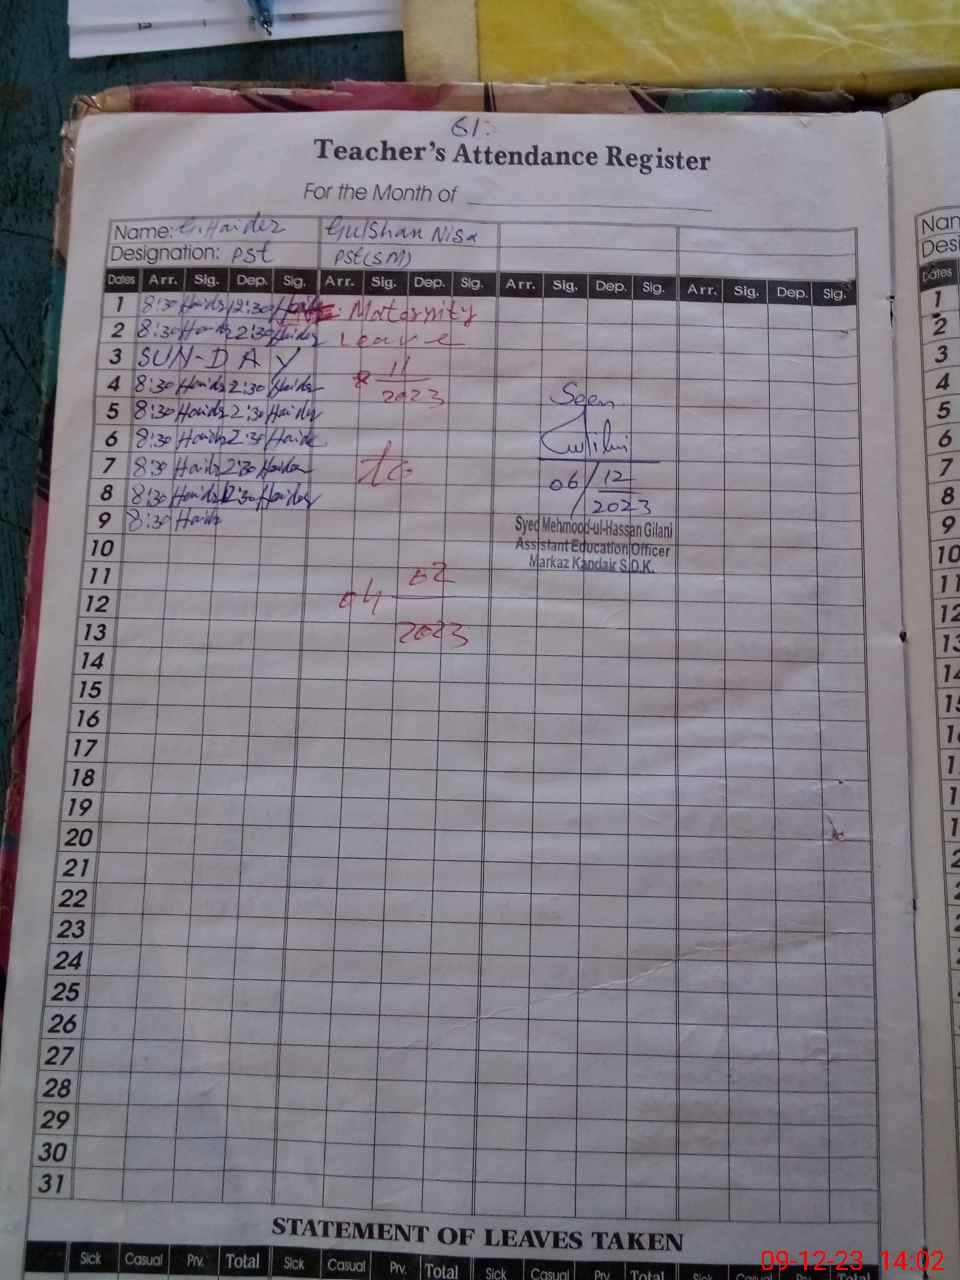 61:
Teacher's Attendance Register
For the Month of
Name: G. Haider Gulshan Nisa
Designation: PST PST(SM)
Dates Arr. Sig. Dep. Sig. Arr. Sig. Dep. Sig. Arr. Sig. Dep. Sig. Arr. Sig. Dep. Sig.
1 8:30 Haider 2:30 Haider Maternity
2 8:30 Haider 2:30 Haider Leave
3 SUN-DAY
4 8:30 Haider 2:30 Haider 11 2023 Seen
5 8:30 Haider 2:30 Haider
6 8:30 Haider 2:30 Haider
7 8:30 Haider 2:30 Haider to 06/12
8 8:30 Haider 2:30 Haider 2023
9 8:30 Haider Syed Mehmood-ul-Hassan Gilani
10 Assistant Education Officer
11 02 Markaz Kandair S.D.K.
12 04
13 2023
14
15
16
17
18
19
20
21
22
23
24
25
26
27
28
29
30
31
STATEMENT OF LEAVES TAKEN
Sick Casual Prv. Total Sick Casual Prv. Total Sick Casual Prv. Total Sick Casual
Nam
Desi
Dates
1
2
3
4
5
6
7
8
9
10
11
12
13
09-12-23 14:02